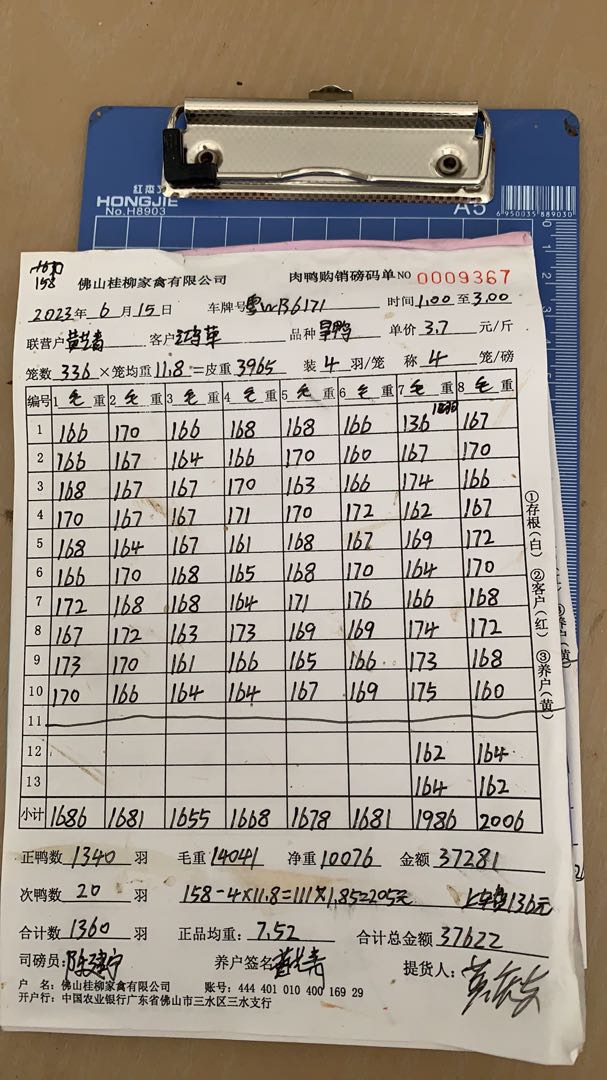 红杰
HONGJIE
No.H8903
A5
6 950035 889030
158
佛山桂柳家禽有限公司 肉鸭购销磅码单 NO 0009367
2023年6月15日 车牌号粤WB6171 时间1.00至3.00
联营户 客户 品种 单价3.7元/斤
笼数336×笼均重11.8=皮重3965 装4羽/笼 称4笼/磅
编号 1毛重 2毛重 3毛重 4毛重 5毛重 6毛重 7毛重 8毛重
1 166 170 166 168 168 166 136 167
2 166 167 164 166 170 160 167 170
3 168 167 167 170 163 166 174 166
4 170 167 167 171 170 172 162 167
5 168 164 167 161 168 167 169 172
6 166 170 168 165 168 170 164 170
7 172 168 168 164 171 176 166 168
8 167 172 163 173 169 169 174 172
9 173 170 161 166 165 166 173 168
10 170 166 164 164 167 169 175 160
11
12 162 164
13 164 162
小计 1686 1681 1655 1668 1678 1681 1986 2006
正鸭数1340羽 毛重14041 净重10076 金额37281
次鸭数20羽 158-4×11.8=111×1.85=205元 136元
合计数1360羽 正品均重:7.52 合计总金额37622
司磅员: 养户签名 提货人:
户 名:佛山桂柳家禽有限公司 账号:444 401 010 400 169 29
开户行:中国农业银行广东省佛山市三水区三水支行
①存根(白) ②客户(红) ③养户(黄)